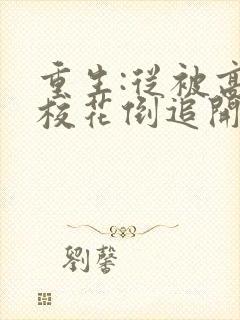 重生:從被高
校花倒追開
劉馨